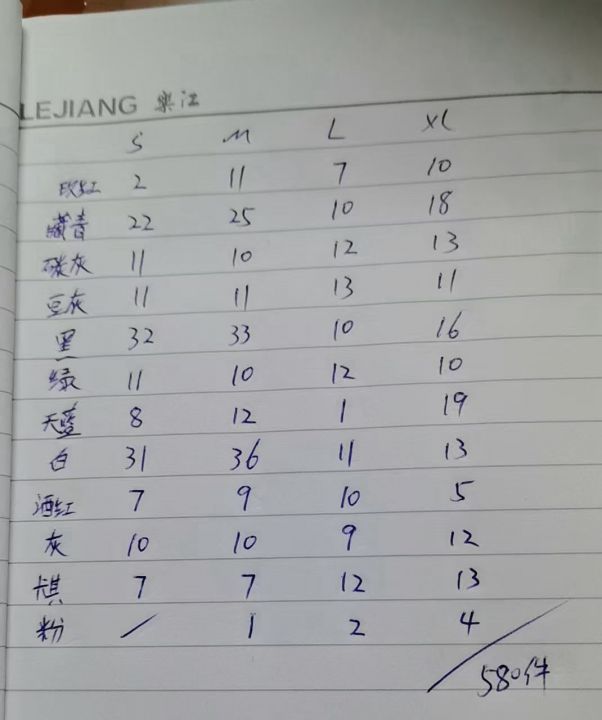 LEJIANG 樂江
S M L XL
玫红 2 11 7 10
藏青 22 25 10 18
碳灰 11 10 12 13
豆灰 11 11 13 11
黑 32 33 10 16
绿 11 10 12 10
天蓝 8 12 1 19
白 31 36 11 13
酒红 7 9 10 5
灰 10 10 9 12
7 7 12 13
粉 / 1 2 4
580件